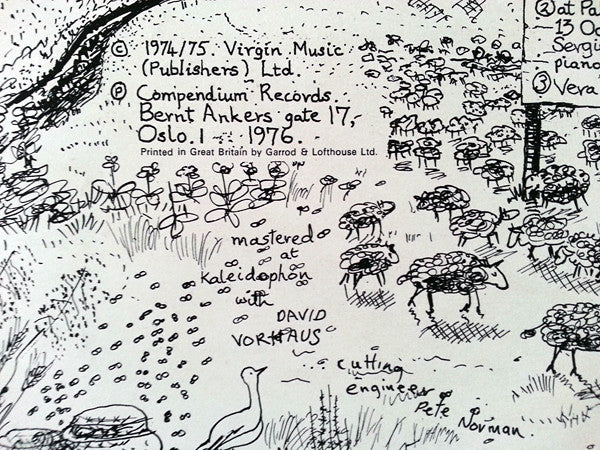 © 1974/75 Virgin Music
(Publishers) Ltd.
℗ Compendium Records
Bernt Ankers gate 17,
Oslo. 1 1976.
Printed in Great Britain by Garrod & Lofthouse Ltd.
② at Pa
13 Oc
Sergi
piano
③ Vera
mastered
at
Kaleidophon
with
DAVID
VORHAUS
cutting
engineer
Pete
Norman.